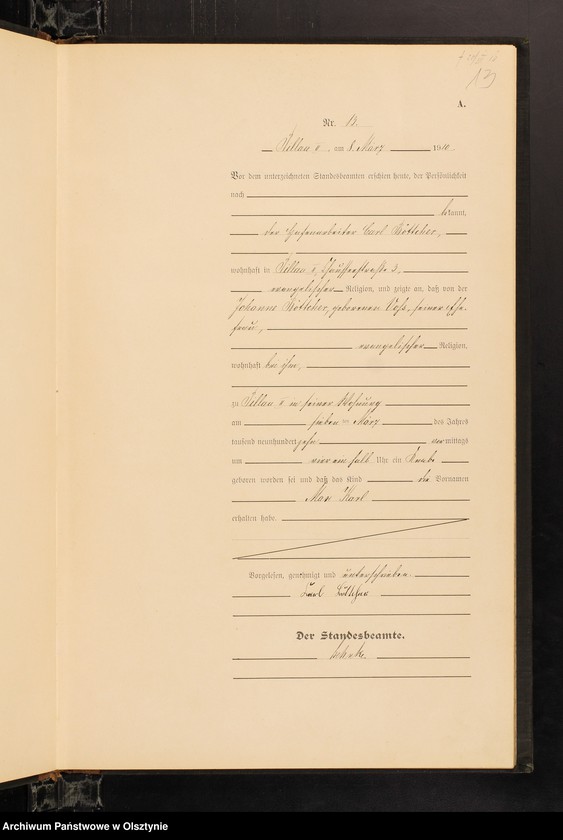 13
A.
Nr. 13.
Pillau II, am 8. März 1910
Vor dem unterzeichneten Standesbeamten erschien heute, der Persönlichkeit
nach
bekannt,
der Hafenarbeiter Carl Böttcher,
wohnhaft in Pillau II, Chausseestraße 3,
evangelischer Religion, und zeigte an, daß von der
Johanne Böttcher, geborenen Voß, seiner Ehe-
frau,
evangelischer Religion,
wohnhaft bei ihm,
zu Pillau II in seiner Wohnung
am sieben ten März des Jahres
tausend neunhundert zehn vormittags
um vier ein halb Uhr ein Knabe
geboren worden sei und daß das Kind die Vornamen
Max Karl
erhalten habe.
Vorgelesen, genehmigt und unterschrieben.
Karl Böttcher
Der Standesbeamte.
Archiwum Państwowe w Olsztynie